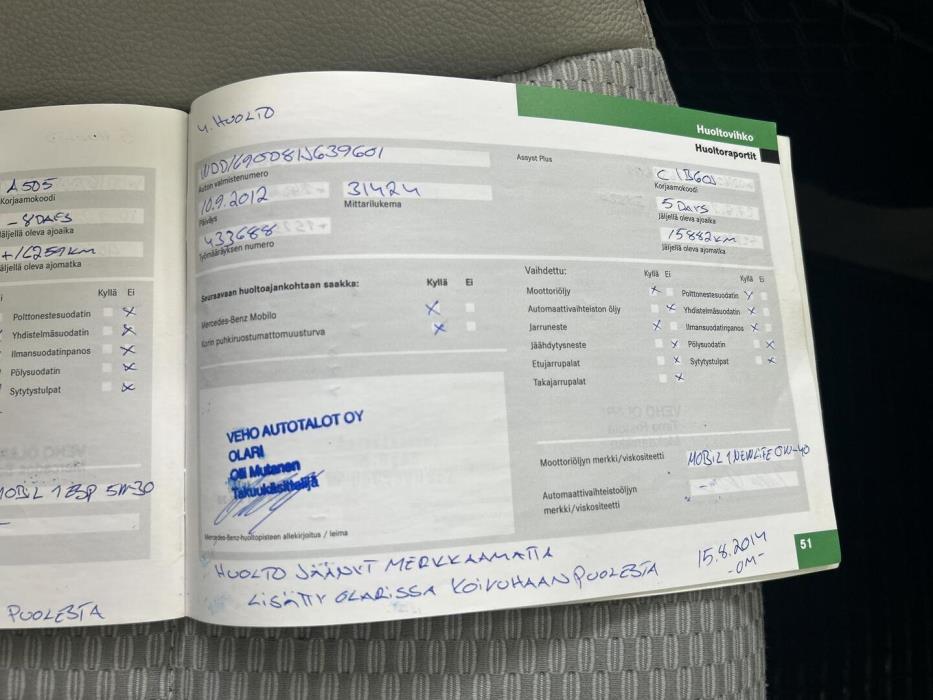 A505
Korjaamokoodi
- 8 DAYS
Jäljellä oleva ajoaika
+16259 km
Jäljellä oleva ajomatka
Kyllä Ei
Polttonestesuodatin X
Yhdistelmäsuodatin X
Ilmansuodatinpanos X
Pölysuodatin X
Sytytystulpat X
MOBIL 1 ESP 5W-30
PUOLESTA
Huoltovihko
Huoltoraportit
4. HUOLTO
Auton valmistenumero
10.9.2012
Päiväys
31424
Mittarilukema
433688
Työmääräyksen numero
Assyst Plus
C1B601
Korjaamokoodi
5 DAYS
Jäljellä oleva ajoaika
15882 km
Jäljellä oleva ajomatka
Seuraavaan huoltoajankohtaan saakka: Kyllä Ei
Mercedes-Benz Mobilo X
Korin puhkiruostumattomuusturva X
Vaihdettu: Kyllä Ei Kyllä Ei
Moottoriöljy X Polttonestesuodatin X
Automaattivaihteiston öljy X Yhdistelmäsuodatin X
Jarruneste X Ilmansuodatinpanos X
Jäähdytysneste X Pölysuodatin X
Etujarrupalat X Sytytystulpat X
Takajarrupalat X
VEHO AUTOTALOT OY
OLARI
Olli Mutanen
Takuukäsittelijä
Mercedes-Benz-huoltopisteen allekirjoitus / leima
Moottoriöljyn merkki/viskositeetti MOBIL 1 NEW LIFE 0W-40
Automaattivaihteistoöljyn
merkki/viskositeetti
HUOLTO JÄÄNYT MERKKAAMATTA
LISÄTTY OLARISSA KOIVUHAAN PUOLESTA
15.8.2014
-OM-
51